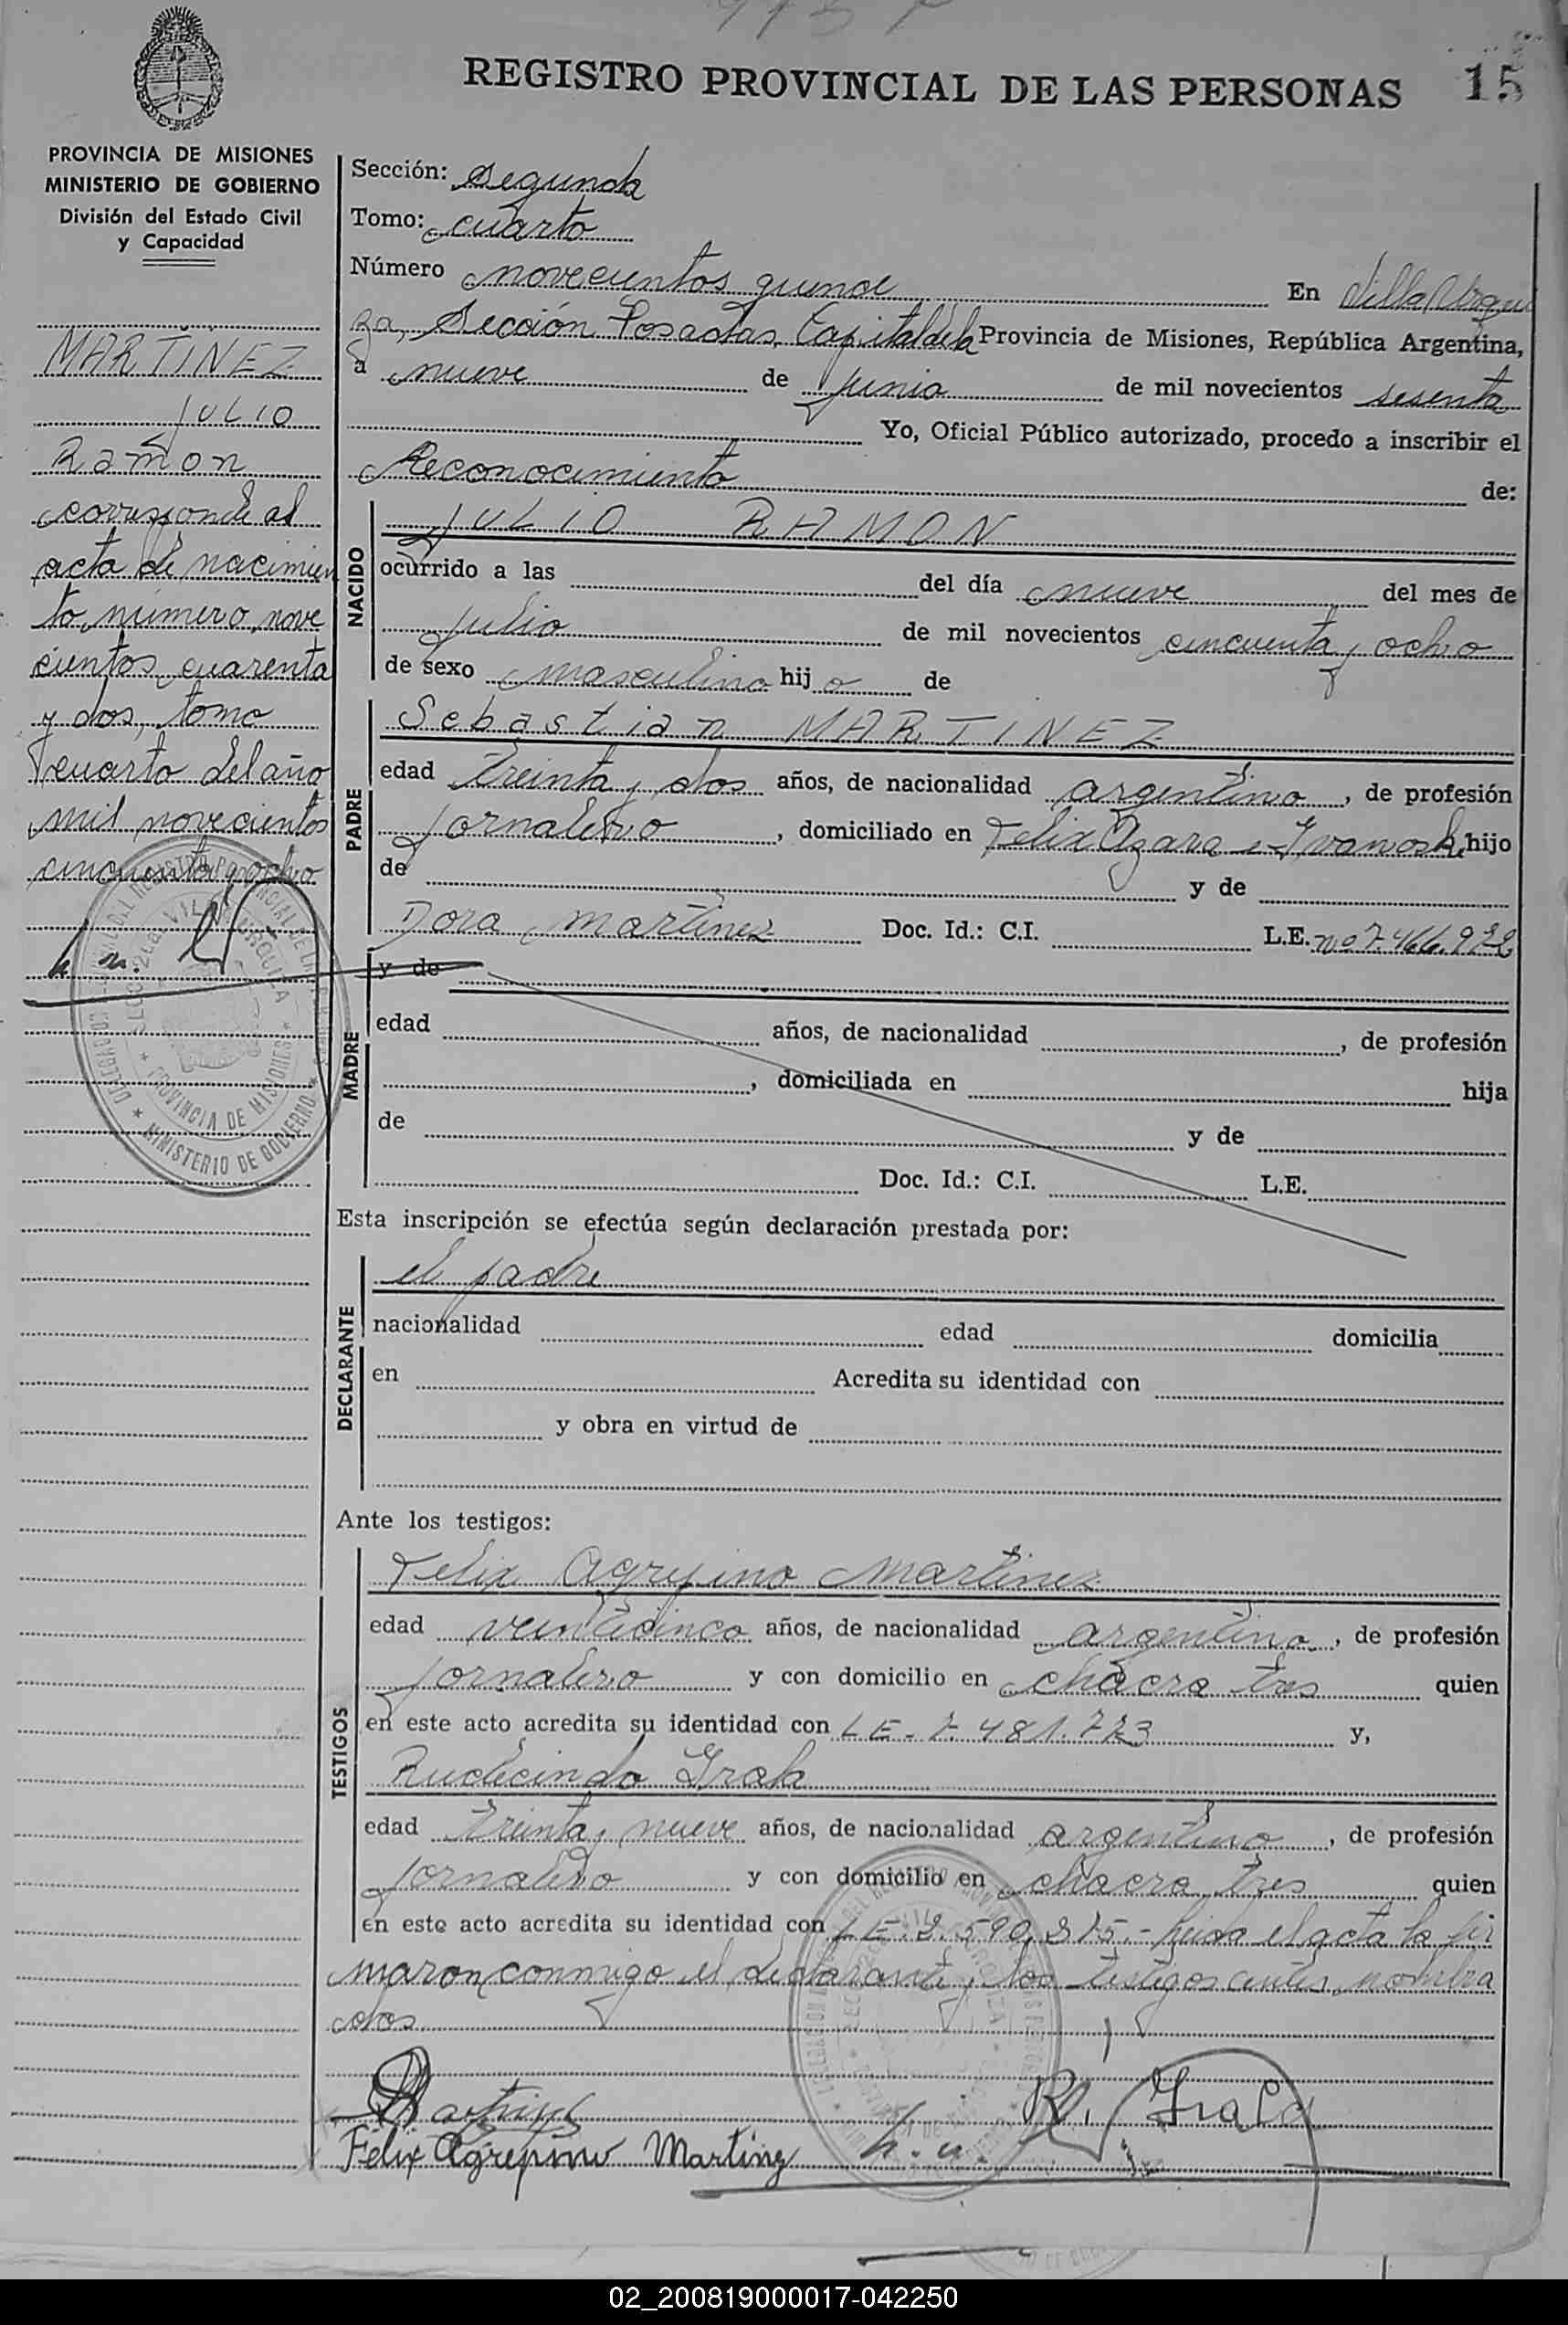 REGISTRO PROVINCIAL DE LAS PERSONAS 15
PROVINCIA DE MISIONES
MINISTERIO DE GOBIERNO
División del Estado Civil
y Capacidad
MARTINEZ
JULIO
Ramón
corresponde al
acta de nacimien
to número nove
cientos cuarenta
y dos, tomo
cuarto del año
mil novecientos
cincuenta y ocho
Sección: segunda
Tomo: cuarto
Número novecientos quince En Villa Urqui
za, Sección Posadas, Capital de la Provincia de Misiones, República Argentina,
a nueve de junio de mil novecientos sesenta
Yo, Oficial Público autorizado, procedo a inscribir el
Reconocimiento de:
NACIDO
JULIO RAMON
ocurrido a las del día nueve del mes de
julio de mil novecientos cincuenta y ocho
de sexo masculino hijo de
PADRE
Sebastian MARTINEZ
edad treinta y dos años, de nacionalidad argentino, de profesión
jornalero, domiciliado en Felix Azara e Ivanoski hijo
de y de
Dora Martinez Doc. Id.: C.I. L.E. no 7.466.922
MADRE
y de
edad años, de nacionalidad , de profesión
, domiciliada en hija
de y de
Doc. Id.: C.I. L.E.
Esta inscripción se efectúa según declaración prestada por:
DECLARANTE
el padre
nacionalidad edad domicilia
en Acredita su identidad con
y obra en virtud de
Ante los testigos:
TESTIGOS
Felix Agripino Martinez
edad veinticinco años, de nacionalidad argentino, de profesión
jornalero y con domicilio en chacra tres quien
en este acto acredita su identidad con LE. 7.481.723 y,
Rudecindo Irala
edad treinta y nueve años, de nacionalidad argentino, de profesión
jornalero y con domicilio en chacra tres quien
en este acto acredita su identidad con LE. 2.590.815.- Leida el acta la fir
maron conmigo el declarante y los testigos antes nombra
dos.
R. Irala
Félix Agrepino Martinz
02_200819000017-042250